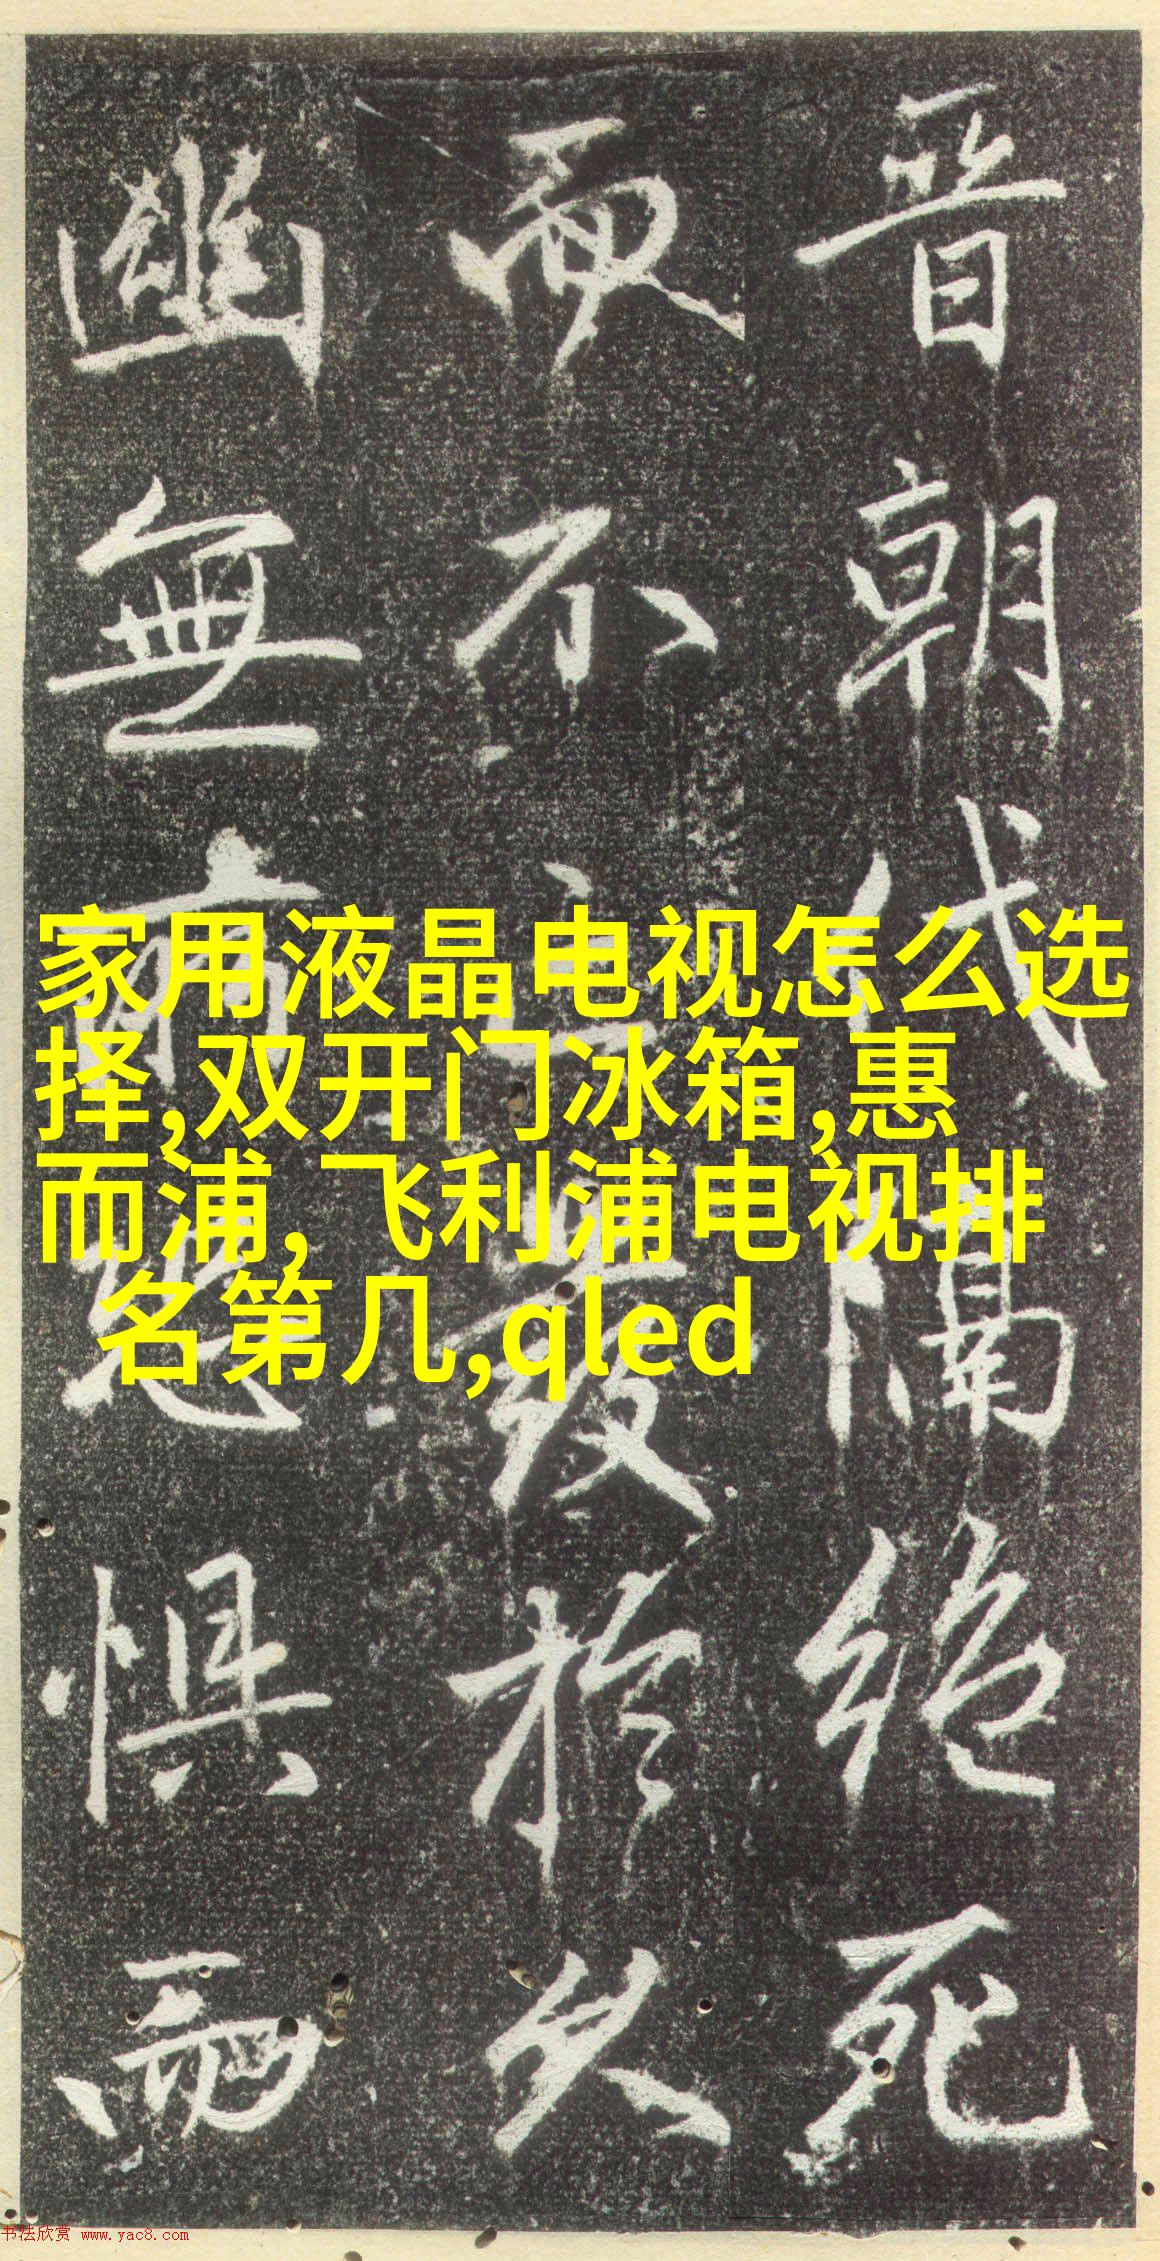 家用液晶电视怎么选
择,双开门冰箱,惠
而浦,飞利浦电视排
名第几,qled
晋朝代隔絶死
而不於久
幽無惧
书法欣赏 www.yac8.com